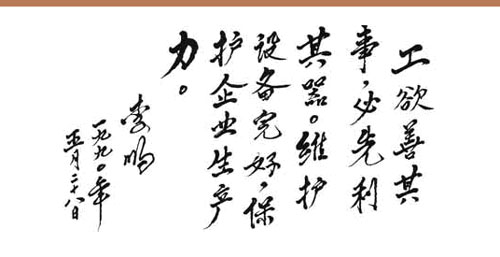 工欲善其
事，必先利
其器。維护
设备完好，保
护企业生产
力。
李鸣
一九九〇年
五月二十八日